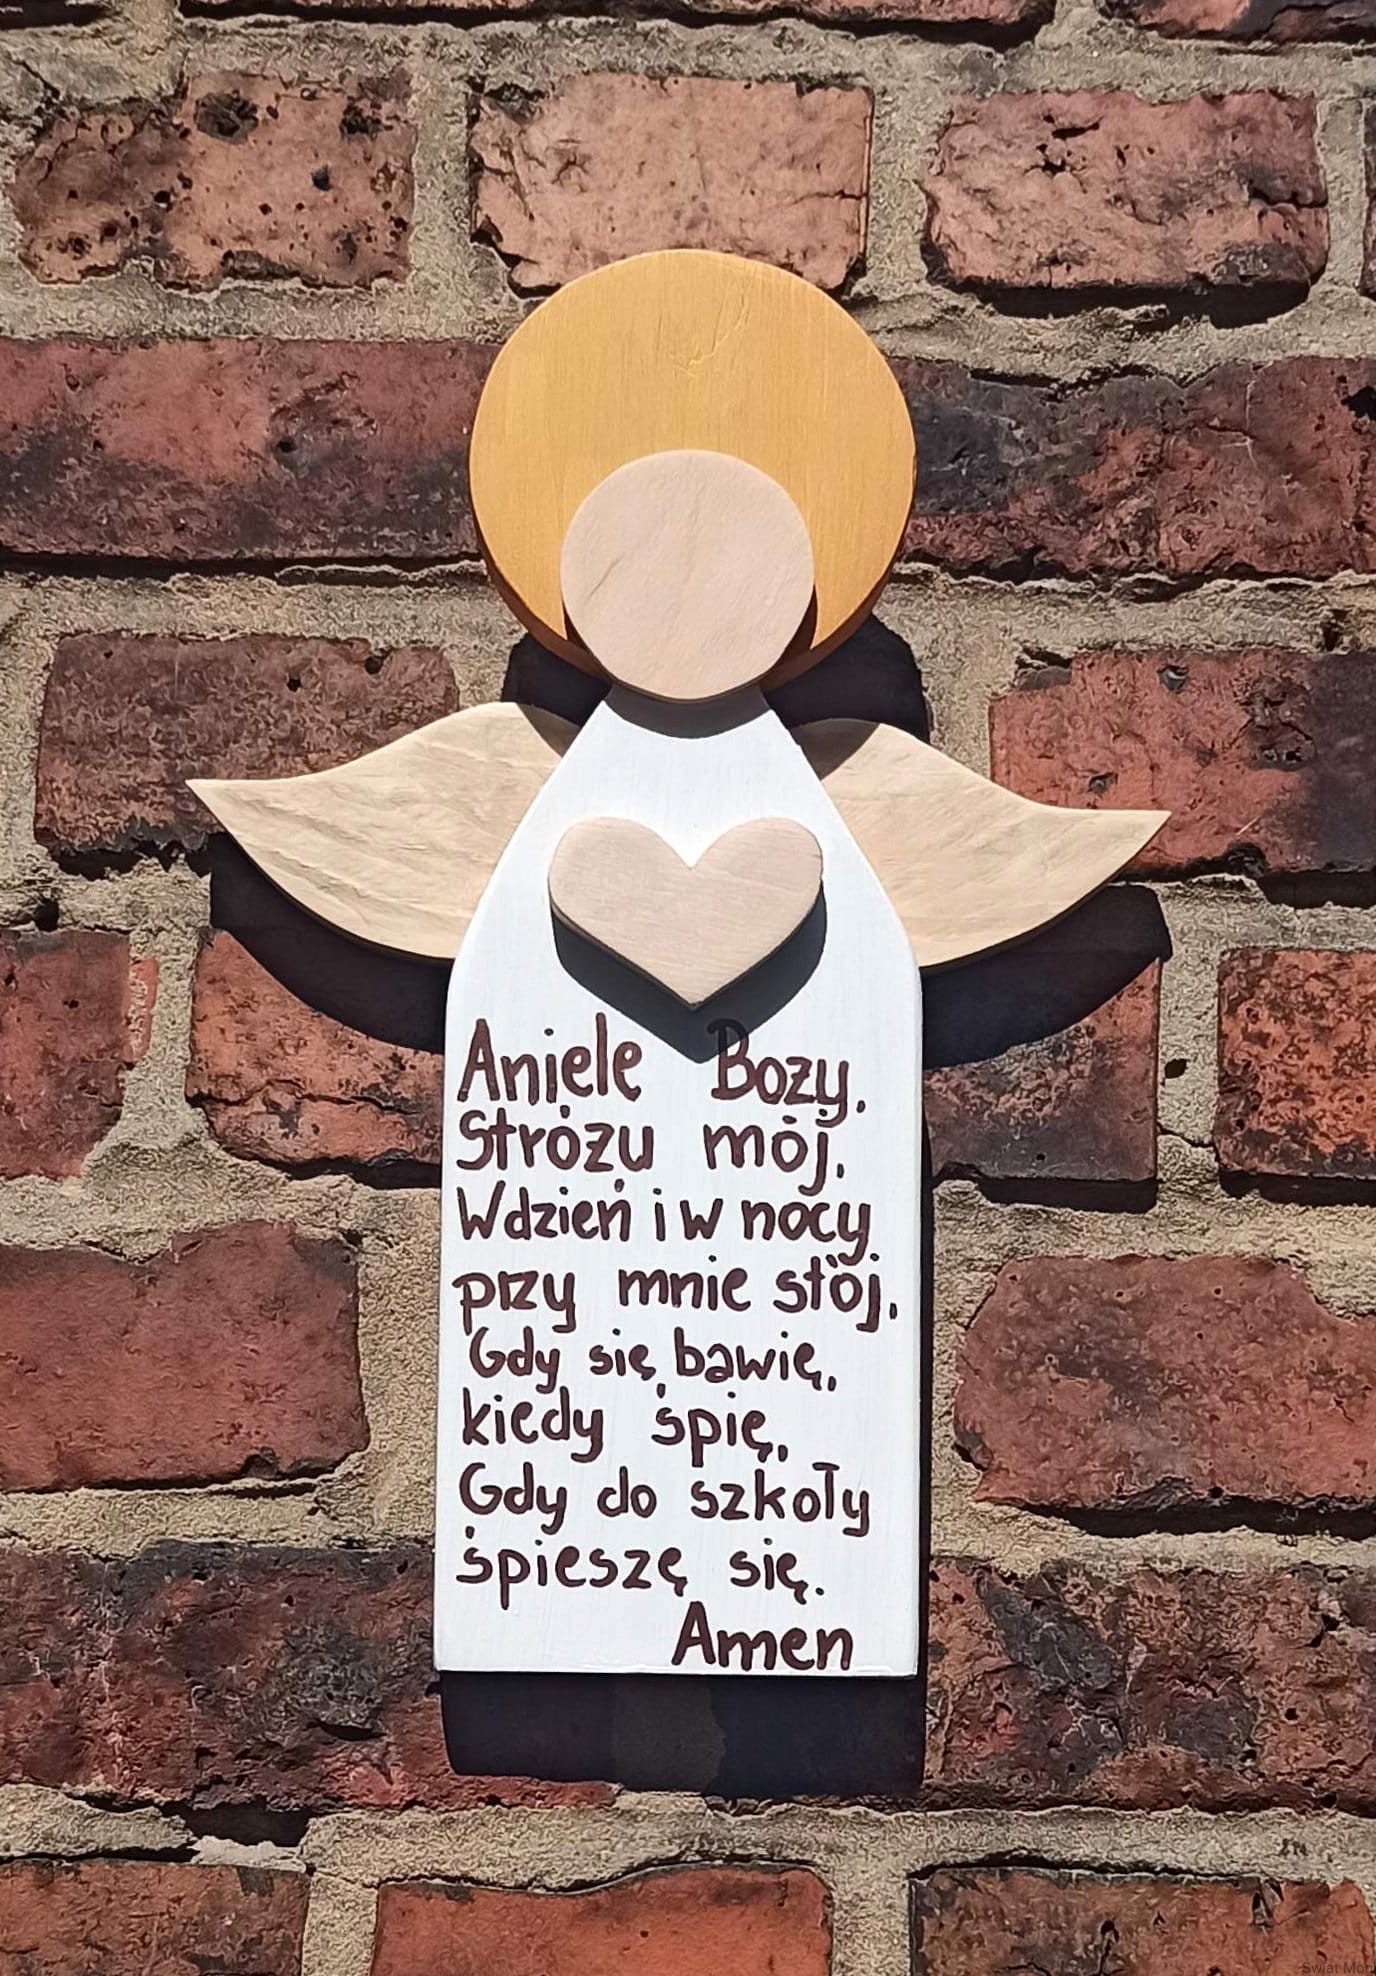 Aniele Boży,
Stróżu mój,
W dzień i w nocy
przy mnie stój,
Gdy się bawię,
kiedy śpię,
Gdy do szkoły
śpieszę się.
Amen